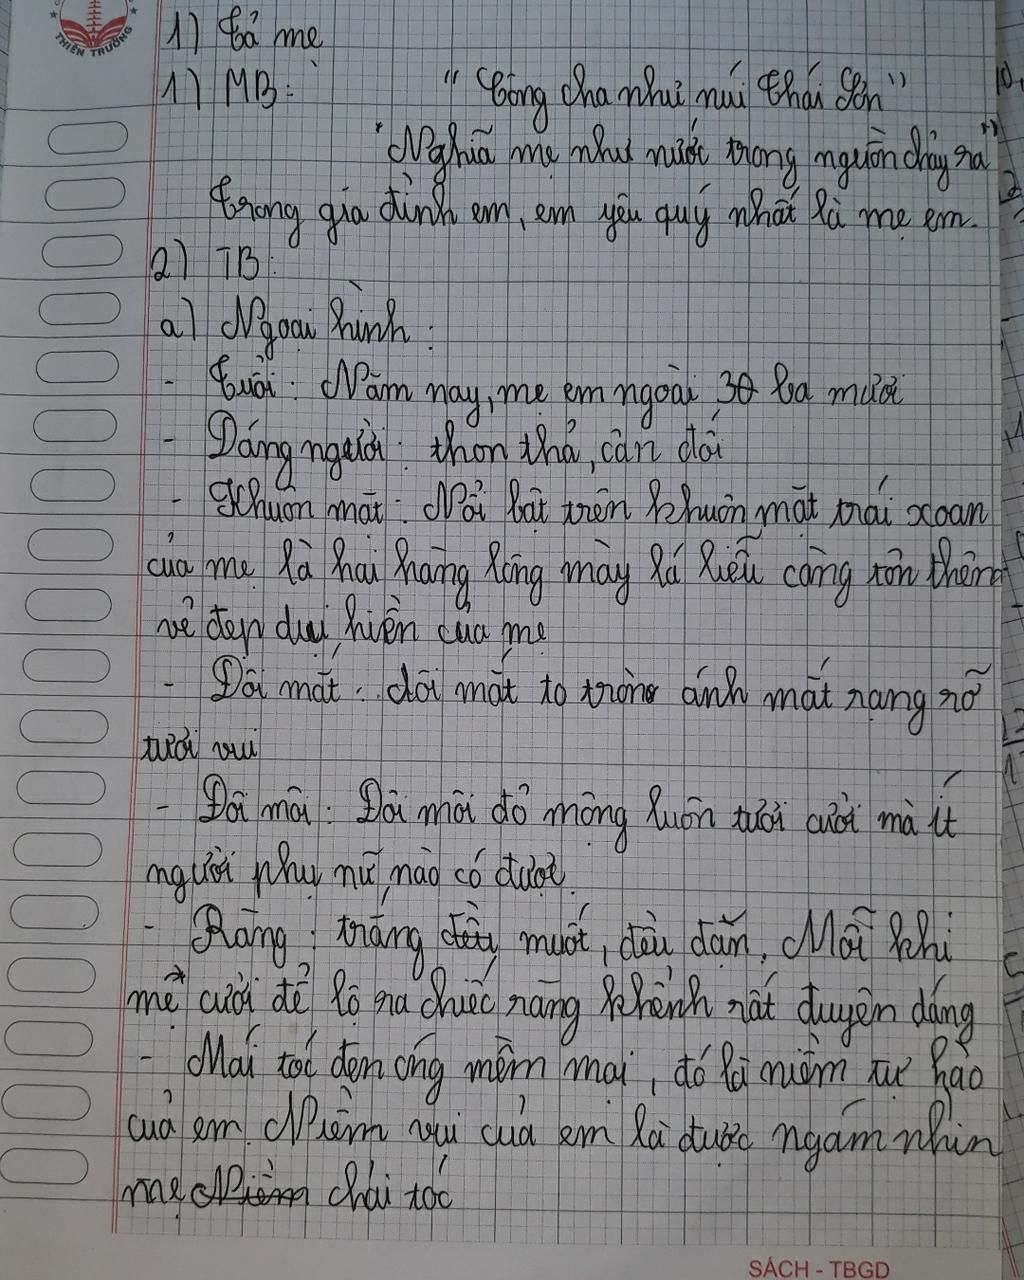 THIÊN TRƯỜNG
1) Tả mẹ
1) MB: "Công cha như núi Thái Sơn"
"Nghĩa mẹ như nước trong nguồn chảy ra"
Trong gia đình em, em yêu quý nhất là mẹ em.
2) TB:
a) Ngoại hình:
- Tuổi: Năm nay, mẹ em ngoài 30 ba mươi
- Dáng người: thon thả, cân đối
- Khuôn mặt: Nổi bật trên khuôn mặt trái xoan
của mẹ là hai hàng lông mày lá liễu càng tôn thêm
vẻ đẹp dịu hiền của mẹ
- Đôi mắt: đôi mắt to tròn ánh mắt rạng rỡ
tươi vui
- Đôi môi: Đôi môi đỏ mộng luôn tươi cười mà ít
người phụ nữ nào có được.
- Răng: trắng đều muốt, đều dặn. Mỗi khi
mẹ cười để lộ ra chiếc răng khểnh rất duyên dáng
- Mái tóc đen óng mềm mại, đó là niềm tự hào
của em. Niềm vui của em là được ngắm nhìn
mẹ Niềm chải tóc
SÁCH - TBGD